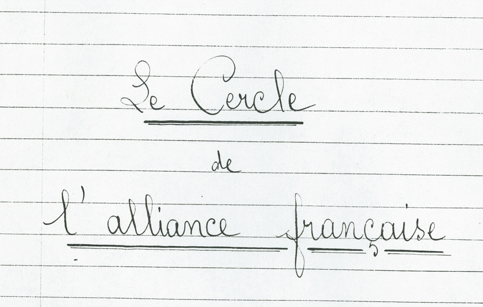 Le Cercle
de
l'alliance française